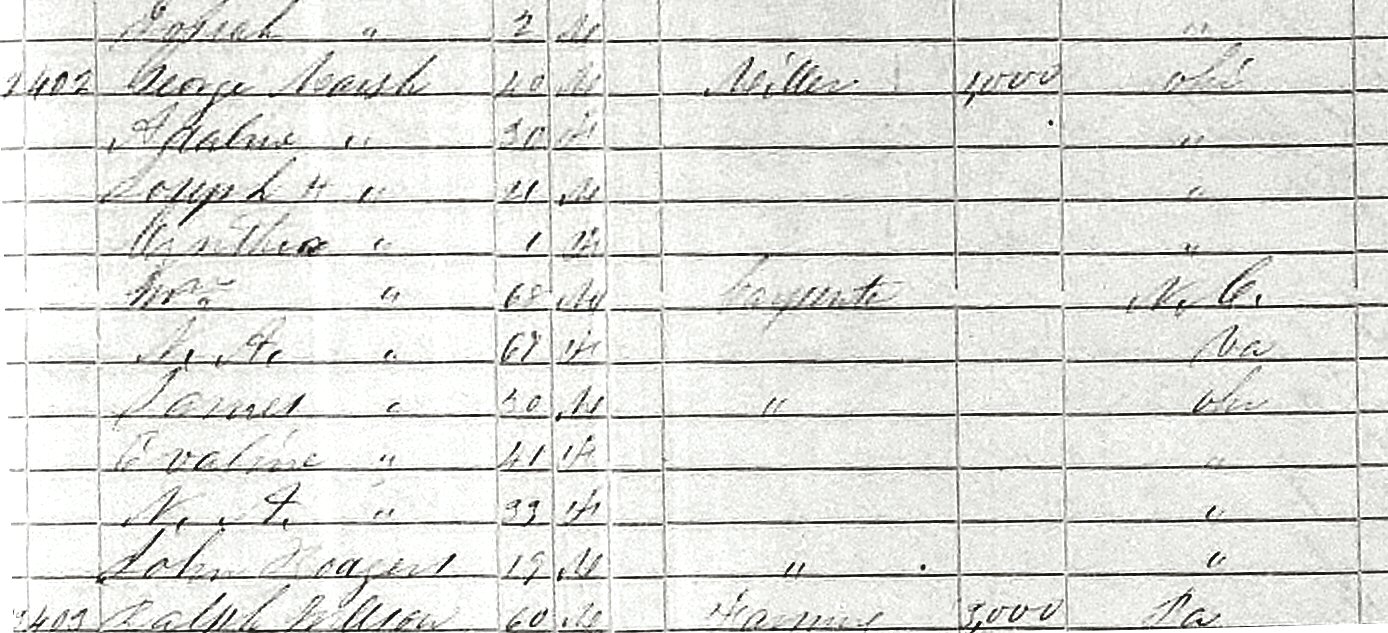 Josiah " 2 M "
1402 George Marsh 40 M Miller 1,000 ohi
" 30 F "
Joseph H " 21 M "
Cynthia " 1 F "
Wm " 68 M Carpente N. C.
N. A. " 67 F Va
James " 30 M " ohi
Evaline " 41 F "
N. A. " 33 F "
John Rodgers 19 M " "
1403 Ralph Willson 60 M Farmer 3,000 Pa